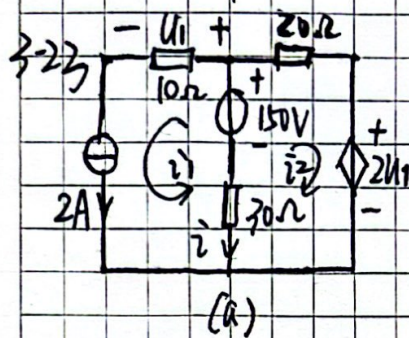 3-23
- U₁ + 20Ω
10Ω
+
150V
-
i₁
i₂
+
2U₁
-
2A
30Ω
i
(a)